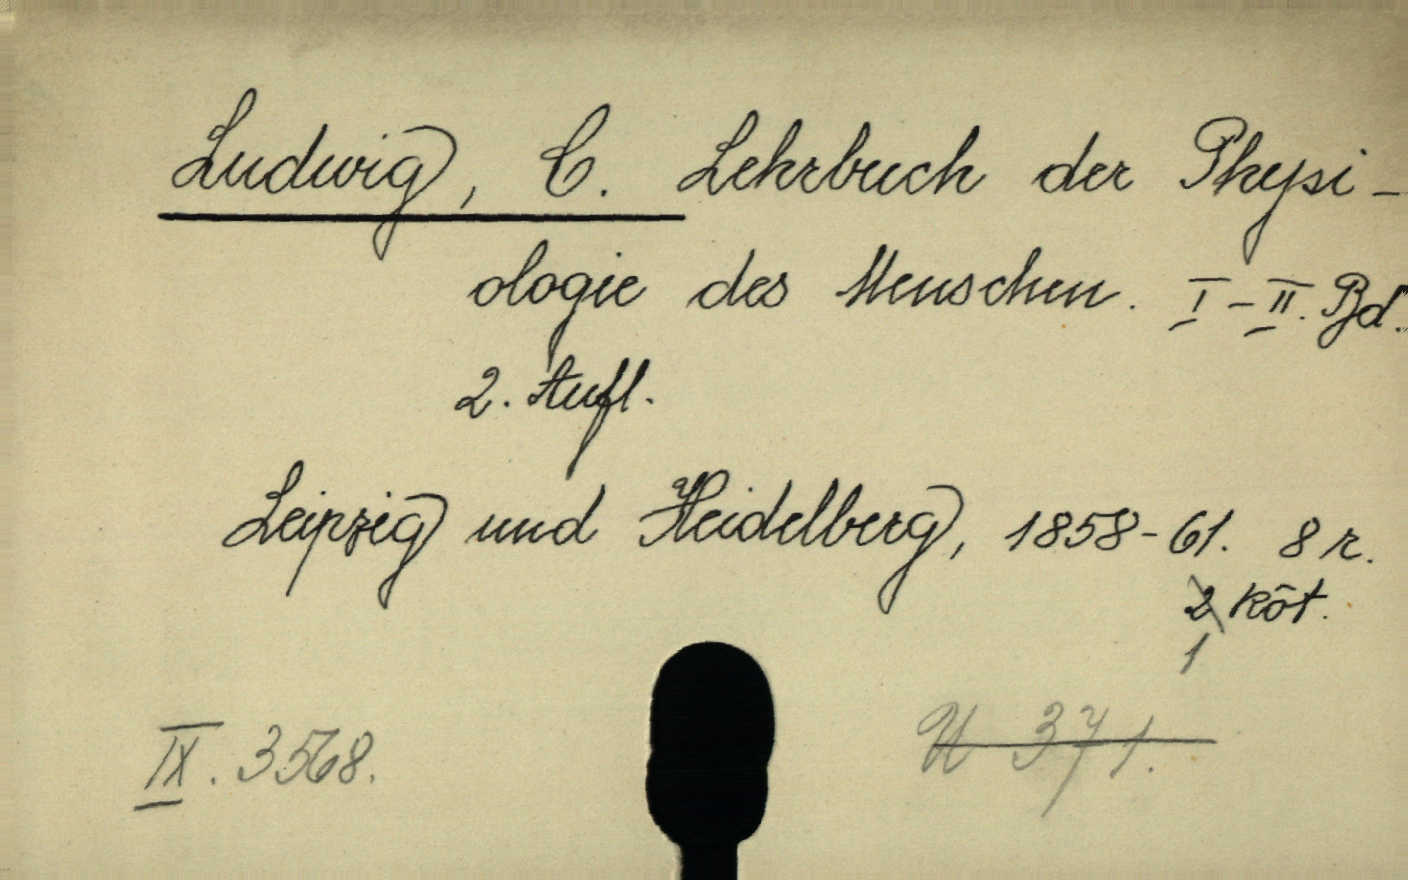 Ludwig, C. Lehrbuch der Physi-
ologie des Menschen. I-II. Bd.
2. Aufl.
Leipzig und Heidelberg, 1858-61. 8 r.
2 Köt.
1
IX. 3568.
U 371.